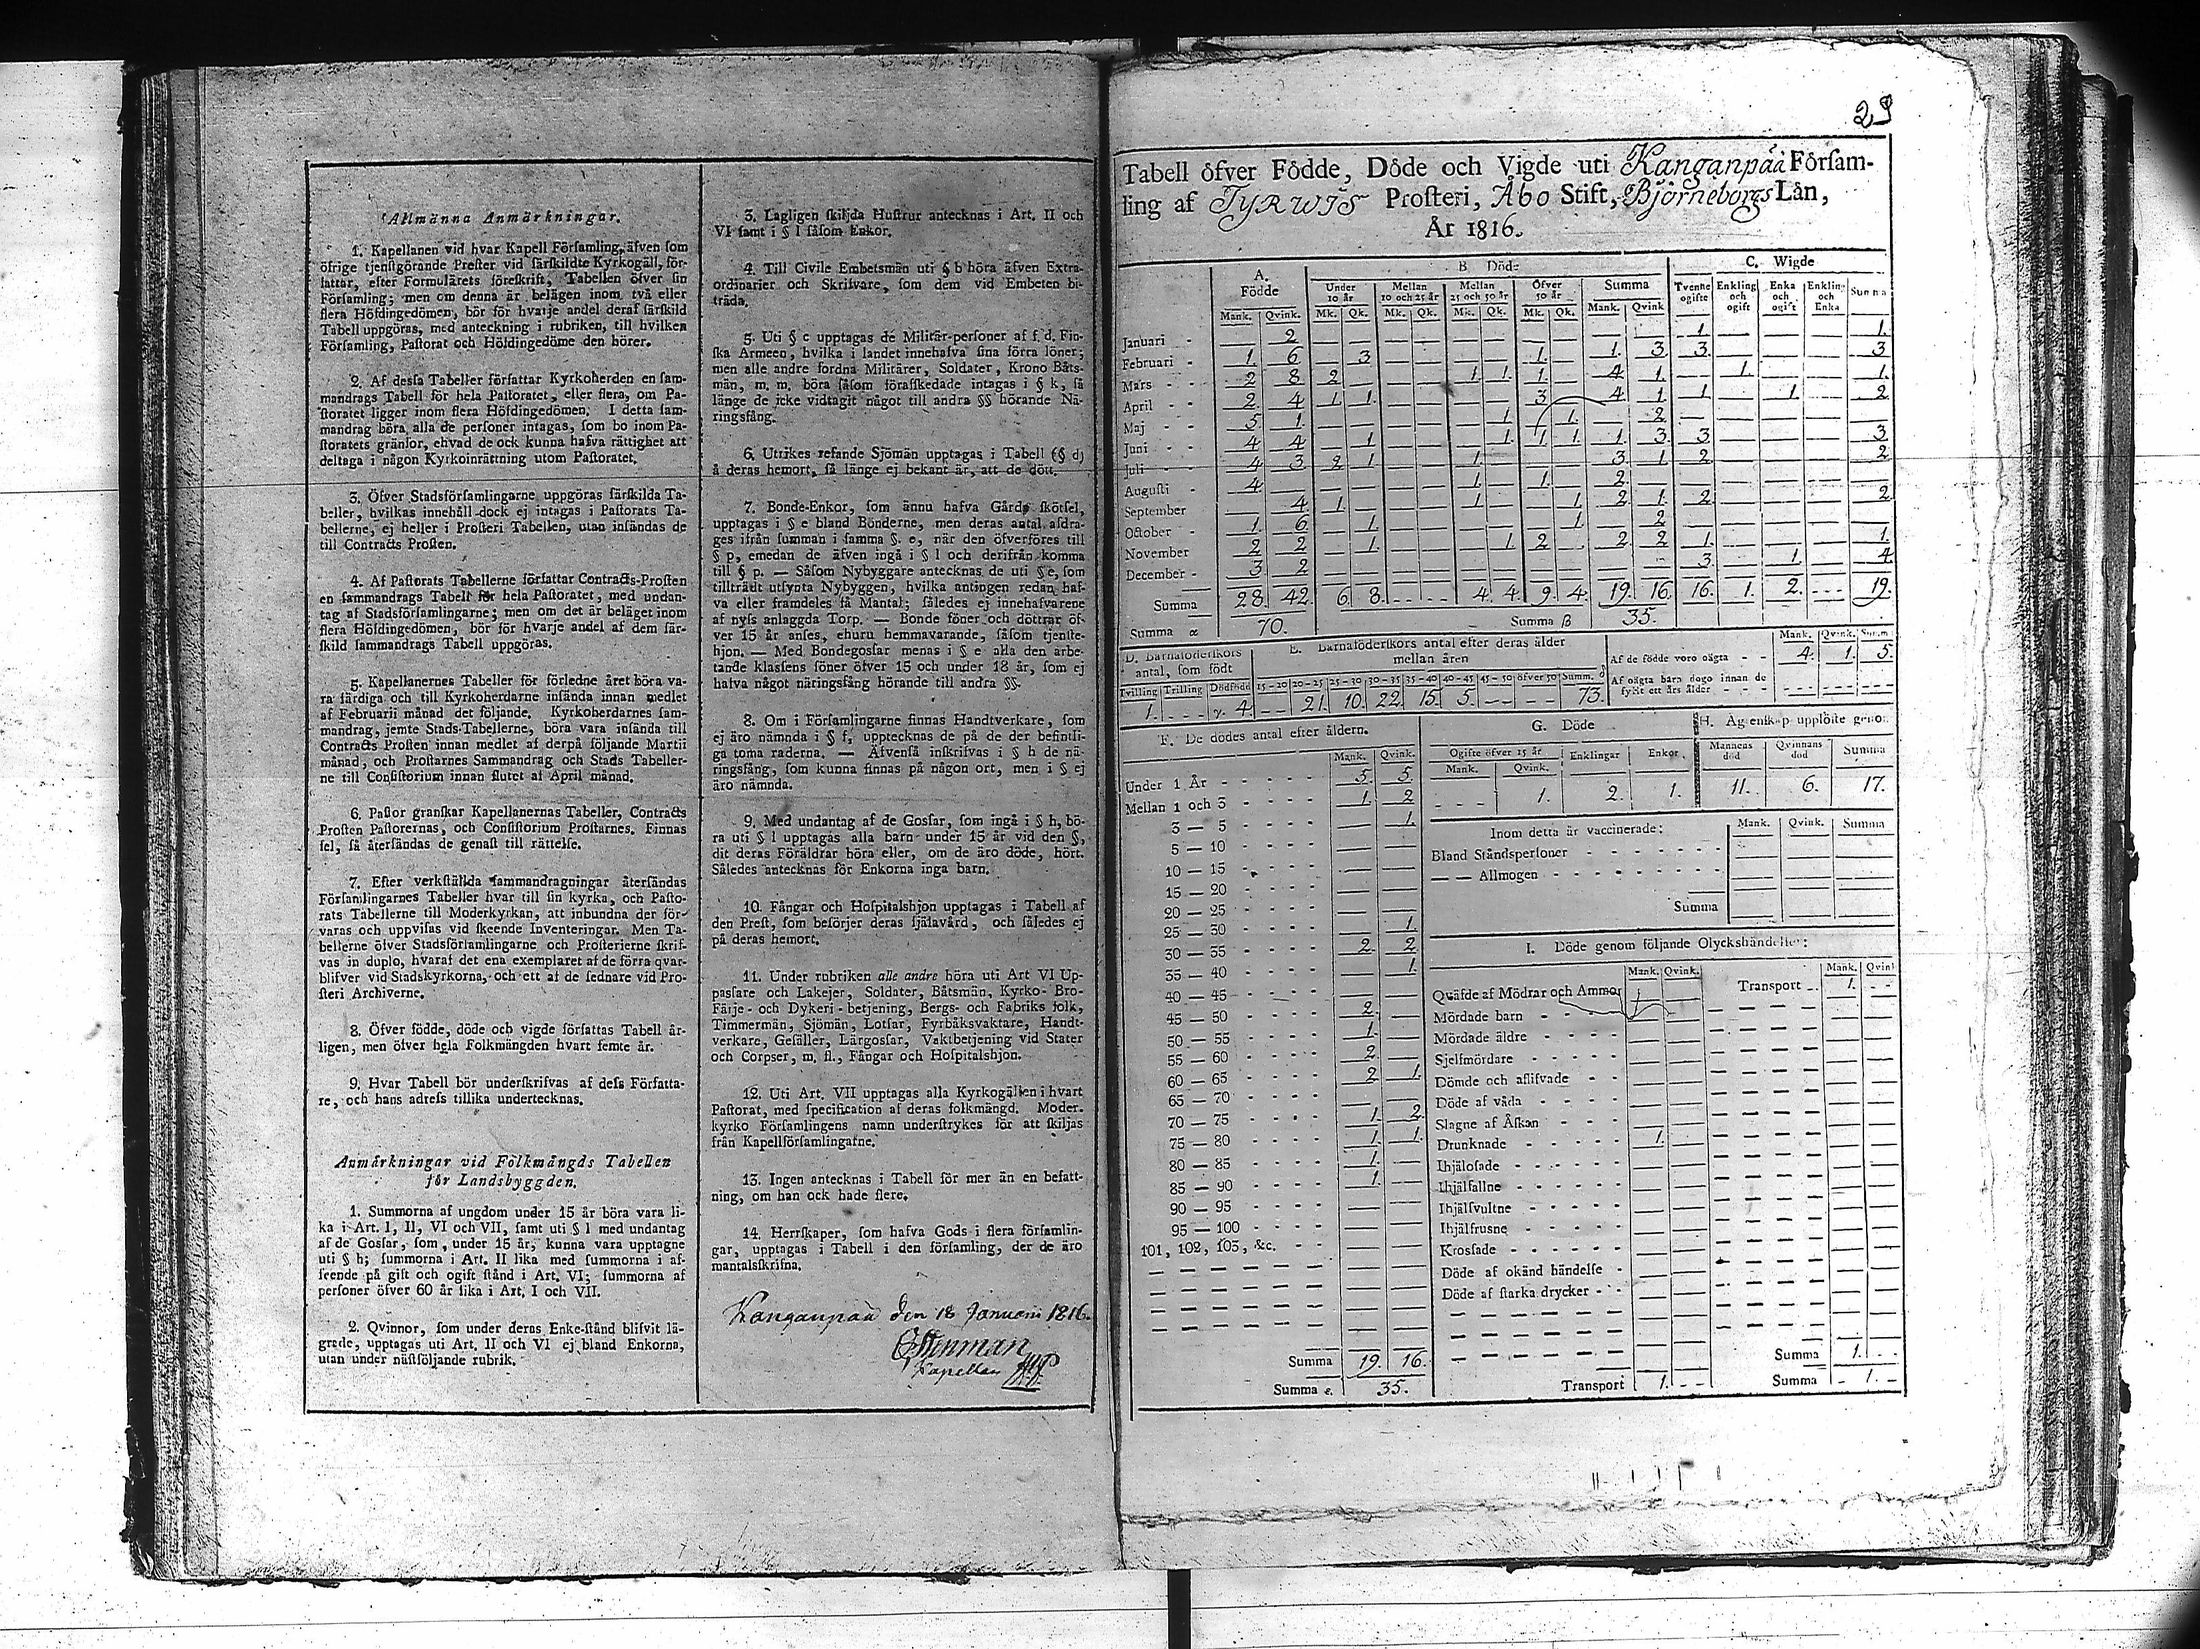 Allmänna Anmärkningar.
1. Kapellanen vid hvar Kapell Församling, äfven som
öfrige tjenstgörande Prester vid särskildte Kyrkogäll, för-
fattar, efter Formulärets föreskrift, Tabellen öfver sin
Församling; men om denna är belägen inom två eller
flera Höfdingedömen, bör för hvarje andel deraf särskild
Tabell uppgöras, med anteckning i rubriken, till hvilken
Församling, Pastorat och Höfdingedöme den hörer.
2. Af dessa Tabeller författar Kyrkoherden en sam-
mandrags Tabell för hela Pastoratet, eller flera, om Pa-
storatet ligger inom flera Höfdingedömen. I detta sam-
mandrag böra alla de personer intagas, som bo inom Pa-
storatets gränsor, ehvad de ock kunna hafva rättighet att
deltaga i någon Kyrkoinrättning utom Pastoratet.
3. Öfver Stadsförsamlingarne uppgöras särskilda Ta-
beller, hvilkas innehåll dock ej intagas i Pastorats Ta-
bellerne, ej heller i Prosteri Tabellen, utan insändas de
till Contracts Prosten.
4. Af Pastorats Tabellerne författar Contracts-Prosten
en sammandrags Tabell för hela Pastoratet, med undan-
tag af Stadsförsamlingarne; men om det är beläget inom
flera Höfdingedömen, bör för hvarje andel af dem sär-
skild sammandrags Tabell uppgöras.
5. Kapellanernes Tabeller för förledne året böra va-
ra färdiga och till Kyrkoherdarne insända innan medlet
af Februarii månad det följande. Kyrkoherdarnes sam-
mandrag, jemte Stads-Tabellerne, böra vara insända till
Contracts Prosten innan medlet af derpå följande Martii
månad, och Prostarnes Sammandrag och Stads Tabeller-
ne till Consistorium innan slutet af April månad.
6. Pastor granskar Kapellanernas Tabeller, Contracts
Prosten Pastorernas, och Consistorium Prostarnes. Finnas
fel, så återsändas de genast till rättelse.
7. Efter verkställda sammandragningar återsändas
Församlingarnes Tabeller hvar till sin kyrka, och Pasto-
rats Tabellerne till Moderkyrkan, att inbundna der för-
varas och uppvisas vid skeende Inventeringar. Men Ta-
bellerne öfver Stadsförsamlingarne och Prosterierne skrif-
vas in duplo, hvaraf det ena exemplaret af de förra qvar-
blifver vid Stadskyrkorna, och ett af de sednare vid Pro-
steri Archiverne.
8. Öfver födde, döde och vigde författas Tabell år-
ligen, men öfver hela Folkmängden hvart femte år.
9. Hvar Tabell bör underskrifvas af dess Författa-
re, och hans adress tillika undertecknas.
Anmärkningar vid Folkmängds Tabellen
för Landsbyggden.
1. Summorna af ungdom under 15 år böra vara li-
ka i Art. I, II, VI och VII, samt uti § l med undantag
af de Gossar, som, under 15 år, kunna vara upptagne
uti § h; summorna i Art. II lika med summorna i af-
seende på gift och ogift stånd i Art. VI; summorna af
personer öfver 60 år lika i Art. I och VII.
2. Qvinnor, som under deras Enke-stånd blifvit lä-
grade, upptagas uti Art. II och VI ej bland Enkorna,
utan under nästföljande rubrik.
3. Lagligen skiljda Hustrur antecknas i Art. II och
VI samt i § l såsom Enkor.
4. Till Civile Embetsmän uti § b höra äfven Extra-
ordinarier och Skrifvare, som dem vid Embeten bi-
träda.
5. Uti § c upptagas de Militär-personer af f. d. Fin-
ska Armeen, hvilka i landet innehafva sina förra löner;
men alle andre fordna Militärer, Soldater, Krono Båts-
män, m. m. böra såsom förafskedade intagas i § k, så
länge de icke vidtagit något till andra §§ hörande Nä-
ringsfång.
6. Utrikes resande Sjömän upptagas i Tabell (§ d)
å deras hemort, så länge ej bekant är, att de dött.
7. Bonde-Enkor, som ännu hafva Gårds skötsel,
upptagas i § e bland Bönderne, men deras antal afdra-
ges ifrån summan i samma §. e, när den öfverföres till
§ p, emedan de äfven ingå i § l och derifrån komma
till § p. — Såsom Nybyggare antecknas de uti § e, som
tillträdt utsynta Nybyggen, hvilka antingen redan haf-
va eller framdeles få Mantal; således ej innehafvarene
af nyss anlaggda Torp. — Bonde söner och döttrar öf-
ver 15 år anses, ehuru hemmavarande, såsom tjenste-
hjon. — Med Bondegossar menas i § e alla den arbe-
tande klassens söner öfver 15 och under 18 år, som ej
hafva något näringsfång hörande till andra §§.
8. Om i Församlingarne finnas Handtverkare, som
ej äro nämnda i § f, upptecknas de på de der befintli-
ga toma raderna. — Äfvenså inskrifvas i § h de nä-
ringsfång, som kunna finnas på någon ort, men i § ej
äro nämnda.
9. Med undantag af de Gossar, som ingå i § h, bö-
ra uti § l upptagas alla barn under 15 år vid den §,
dit deras Föräldrar höra eller, om de äro döde, hört.
Således antecknas för Enkorna inga barn.
10. Fångar och Hospitalshjon upptagas i Tabell af
den Prest, som besörjer deras själavård, och således ej
på deras hemort.
11. Under rubriken alle andre höra uti Art VI Up-
passare och Lakejer, Soldater, Båtsmän, Kyrko- Bro-
Färje- och Dykeri-betjening, Bergs- och Fabriks folk,
Timmermän, Sjömän, Lotsar, Fyrbåksvaktare, Handt-
verkare, Gesäller, Lärgossar, Vaktbetjening vid Stater
och Corpser, m. fl., Fångar och Hospitalshjon.
12. Uti Art. VII upptagas alla Kyrkogällen i hvart
Pastorat, med specification af deras folkmängd. Moder-
kyrko Församlingens namn understrykes för att skiljas
från Kapellförsamlingarne.
13. Ingen antecknas i Tabell för mer än en befatt-
ning, om han ock hade flere.
14. Herrskaper, som hafva Gods i flera församlin-
gar, upptagas i Tabell i den församling, der de äro
mantalsskrifna.
Kanganpää den 18 Januarii 1816.
Stenman
Kapellan
29
Tabell öfver Födde, Döde och Vigde uti Kanganpää Försam-
ling af TYRWIS Prosteri, Åbo Stift, Björneborgs Län,
År 1816.
A. Födde B. Döde C. Wigde
Under 10 år Mellan 10 och 25 år Mellan 25 och 50 år Öfver 50 år Summa Tvenne ogifte Enkling och ogift Enka och ogift Enkling och Enka Summa
Mank. Qvink. Mk. Qk. Mk. Qk. Mk. Qk. Mk. Qk. Mank. Qvink
Januari - — 2 — — — — — — — — — — 1. — — — 1.
Februari - 1. 6 — 3 — — — — 1. — 1. 3 3. — — — 3
Mars - - 2 8 2 — — — 1. 1. 1. — 4 1. — 1. — — 1.
April - - 2 4 1. 1. — — — — 3 — 4 1. 1 — 1. — 2
Maj - - 5 1. — — — — — 1. — 1. — 2 — — — — —
Juni - - 4 4 — 1. — — — 1. 1. 1. 1. 3. 3 — — — 3
Juli - - 4 3 2 1. — — 1. — — — 3 1. 2 — — — 2
Augusti - 4 — — — — — 1. — 1. — 2. — — — — — —
September — 4 1. — — — 1. — — 1. 2 1. 2 — — — 2
October - 1. 6 — 1. — — — — — 1. — 2 — — — — —
November 2 2 — 1. — — — 1. 2 — 2 2 1. — — — 1.
December - 3 2 — — — — — — — — — — 3 — 1. — 4
Summa 28. 42. 6. 8. - - - - 4. 4. 9. 4. 19. 16. 16. 1. 2. - - - 19.
Summa α 70. Summa β 35.
D. Barnaföderskors antal, som födt
Tvilling Trilling Dödfödd
1. - - - γ. 4.
E. Barnaföderskors antal efter deras ålder
mellan åren
15—20 20—25 25—30 30—35 35—40 40—45 45—50 öfver 50 Summ. δ
- - 21. 10. 22. 15. 5. - - - - 73.
Mank. Qvink. Summ
Af de födde voro oägta - - 4. 1. 5.
Af oägta barn dogo innan de
fyllt ett års ålder - - - - - - - -
F. De dödes antal efter åldern.
Mank. Qvink.
Under 1 År - - - - - 5. 5.
Mellan 1 och 3 - - - - 1. 2
3 — 5 - - - - — 1.
5 — 10 - - - - — —
10 — 15 - - - - — —
15 — 20 - - - - — —
20 — 25 - - - - — —
25 — 30 - - - - — 1.
30 — 35 - - - - 2. 2
35 — 40 - - - - — 1.
40 — 45 - - - - — —
45 — 50 - - - - 2. —
50 — 55 - - - - 1. —
55 — 60 - - - - 2 —
60 — 65 - - - - 2 1.
65 — 70 - - - - — —
70 — 75 - - - - 1. 2
75 — 80 - - - - 1. 1.
80 — 85 - - - - 1. —
85 — 90 - - - - 1. —
90 — 95 - - - - — —
95 — 100 - - - - — —
101, 102, 103, &c. - - — —
Summa 19. 16.
Summa ε. 35.
G. Döde
Ogifte öfver 15 år Enklingar Enkor.
Mank. Qvink.
- - - 1. 2. 1.
H. Ägtenskap upplöste genom
Mannens död Qvinnans död Summa
11. 6. 17.
Inom detta år vaccinerade: Mank. Qvink. Summa
Bland Ståndspersoner - - - - - - — — —
— — Allmogen - - - - - - - — — —
Summa — — —
I. Döde genom följande Olyckshändelser:
Mank. Qvink. Mank. Qvink
Qväfde af Mödrar och Ammor — — Transport - - 1. - -
Mördade barn - - - — —
Mördade äldre - - - - — —
Sjelfmördare - - - - — —
Dömde och aflifvade - - — —
Döde af våda - - - - — —
Slagne af Åskan - - - — —
Drunknade - - - - 1. —
Ihjälosade - - - - - — —
Ihjälfallne - - - - - — —
Ihjälsvultne - - - - - — —
Ihjälfrusne - - - - - — —
Krossade - - - - - - — —
Döde af okänd händelse - — —
Döde af starka drycker - - — —
Summa 1. - -
Transport 1. - - Summa - 1. -